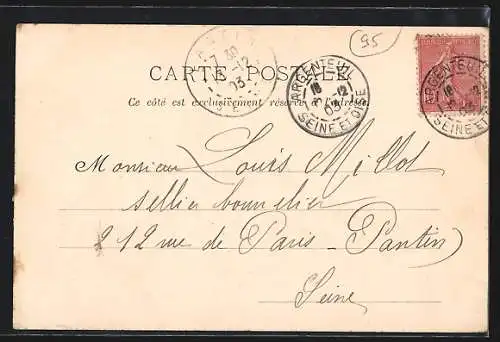 95
CARTE POSTALE
Ce côté est exclusivement réservé à l'adresse
7 30
12
03
ARGENTEUIL
18
12
03
SEINE ET OISE
ARGENTEUIL
18
12
SEINE ET OISE
Monsieur Louis Millot
sellier bourrelier
212 rue de Paris-Pantin
Seine